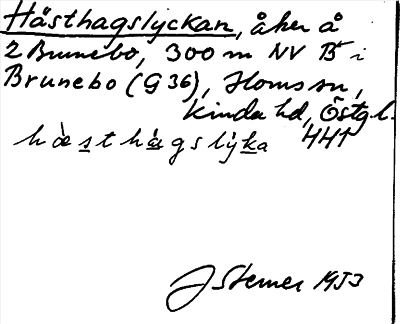 Hästhagslyckan, åker å
2 Brunebo, 300 m NV B5 i
Brunebo (G36), Horns sn,
Kinda hd, Östgl.
hæ̀sthágslýka HH1
J Sterner 1953